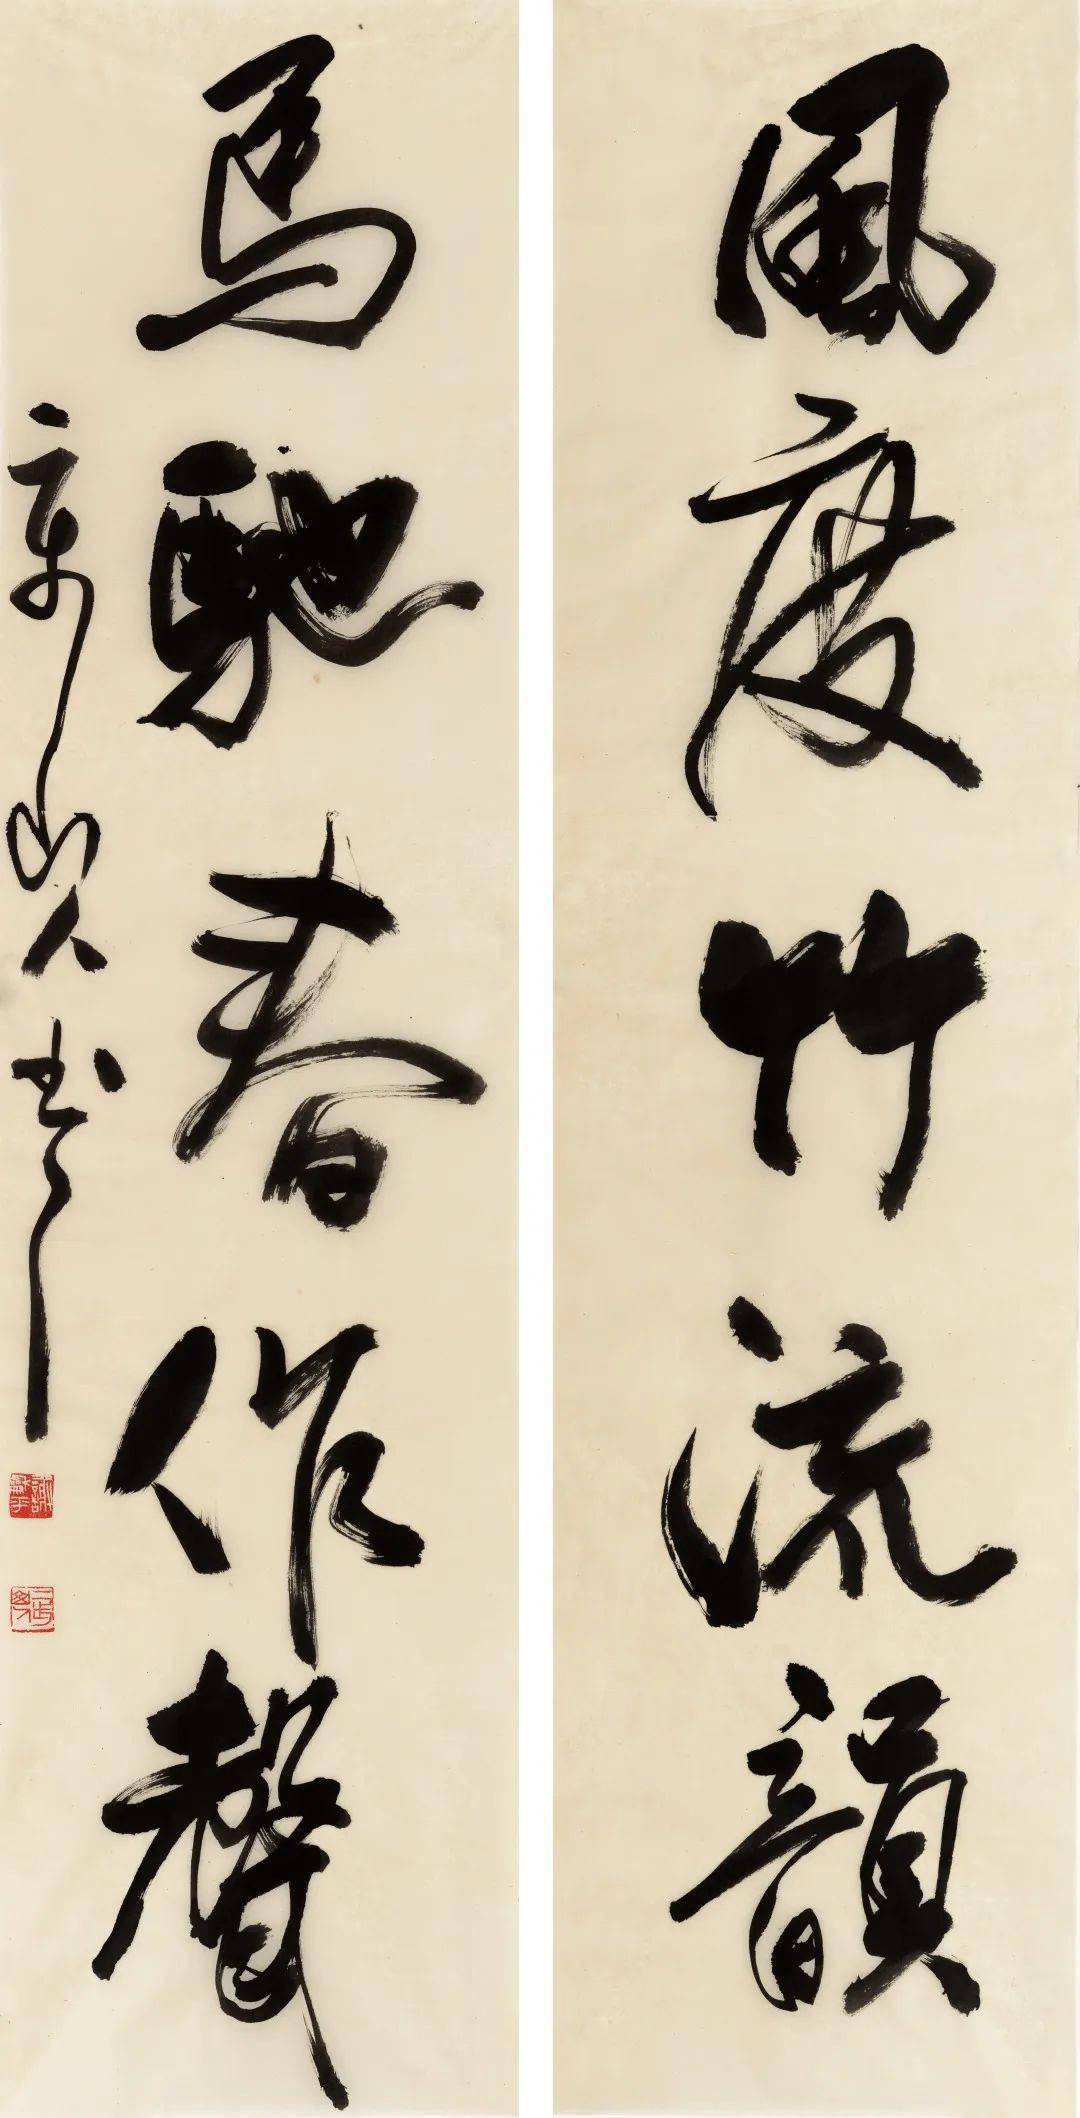 風度竹流韻
馬馳春作聲
山人书